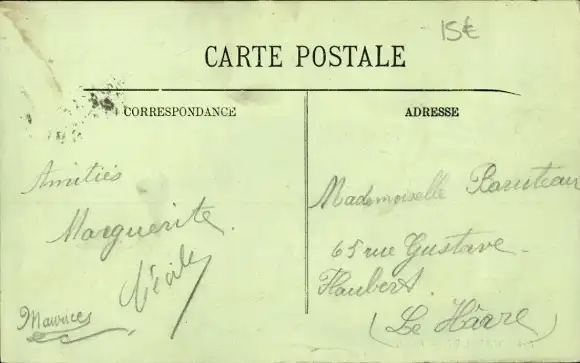 15€
CARTE POSTALE
CORRESPONDANCE
Amitiés
Marguerite.
Cécile
Maurices
ADRESSE
Mademoiselle Baruteau
65 rue Gustave
Flaubert
(Le Hâvre)